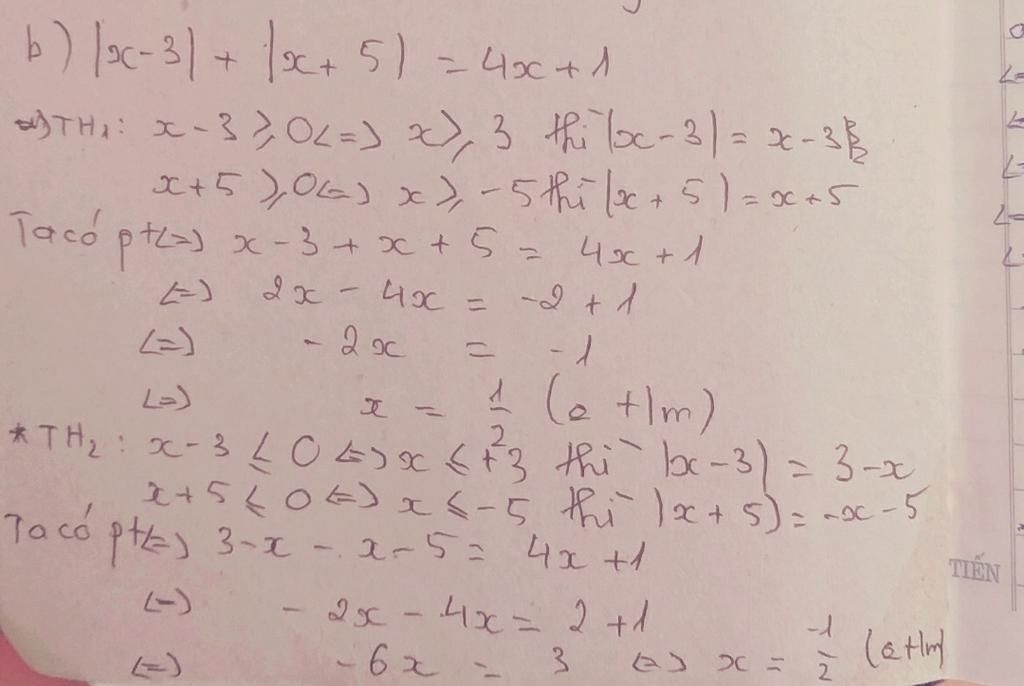 b) |x-3| + |x+5| = 4x+1
TH1: x-3 ≥ 0 <=> x ≥ 3 thì |x-3| = x-3
x+5 ≥ 0 <=> x ≥ -5 thì |x+5| = x+5
Ta có pt <=> x-3 + x + 5 = 4x+1
<=> 2x - 4x = -2 + 1
<=> -2x = -1
<=> x = 1/2 (o t/m)
* TH2: x-3 ≤ 0 <=> x ≤ +3 thì |x-3| = 3-x
x+5 ≤ 0 <=> x ≤ -5 thì |x+5| = -x-5
Ta có pt <=> 3-x - x-5 = 4x+1
<=> -2x - 4x = 2+1
<=> -6x = 3 <=> x = -1/2 (o t/m)
TIẾN